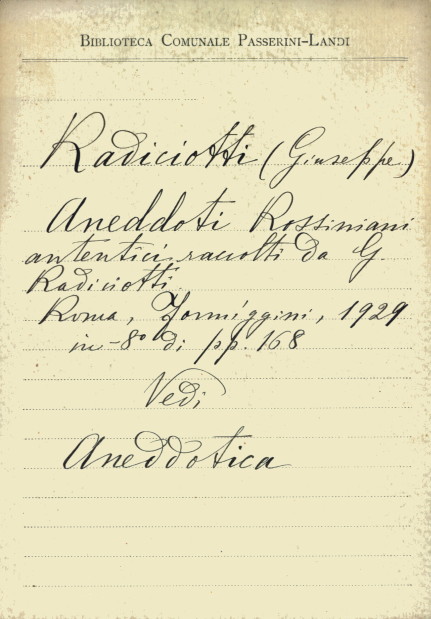 BIBLIOTECA COMUNALE PASSERINI-LANDI
Radiciotti (Giuseppe)
Aneddoti Rossiniani
autentici raccolti da G.
Radiciotti
Roma, Formiggini, 1929
in-8º di pp. 168
Vedi
Aneddotica